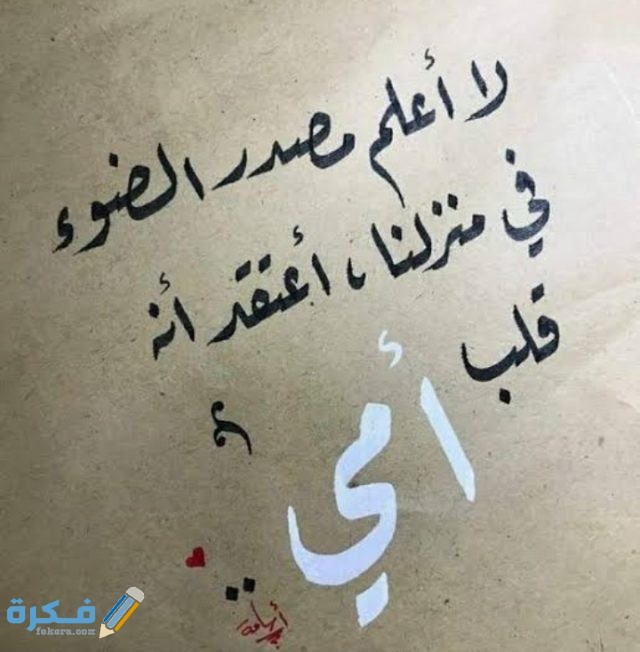 لا أعلم مصدر الضوء
في منزلنا، أعتقد أنه
قلب
أمي
..
فكرة
fekera.com